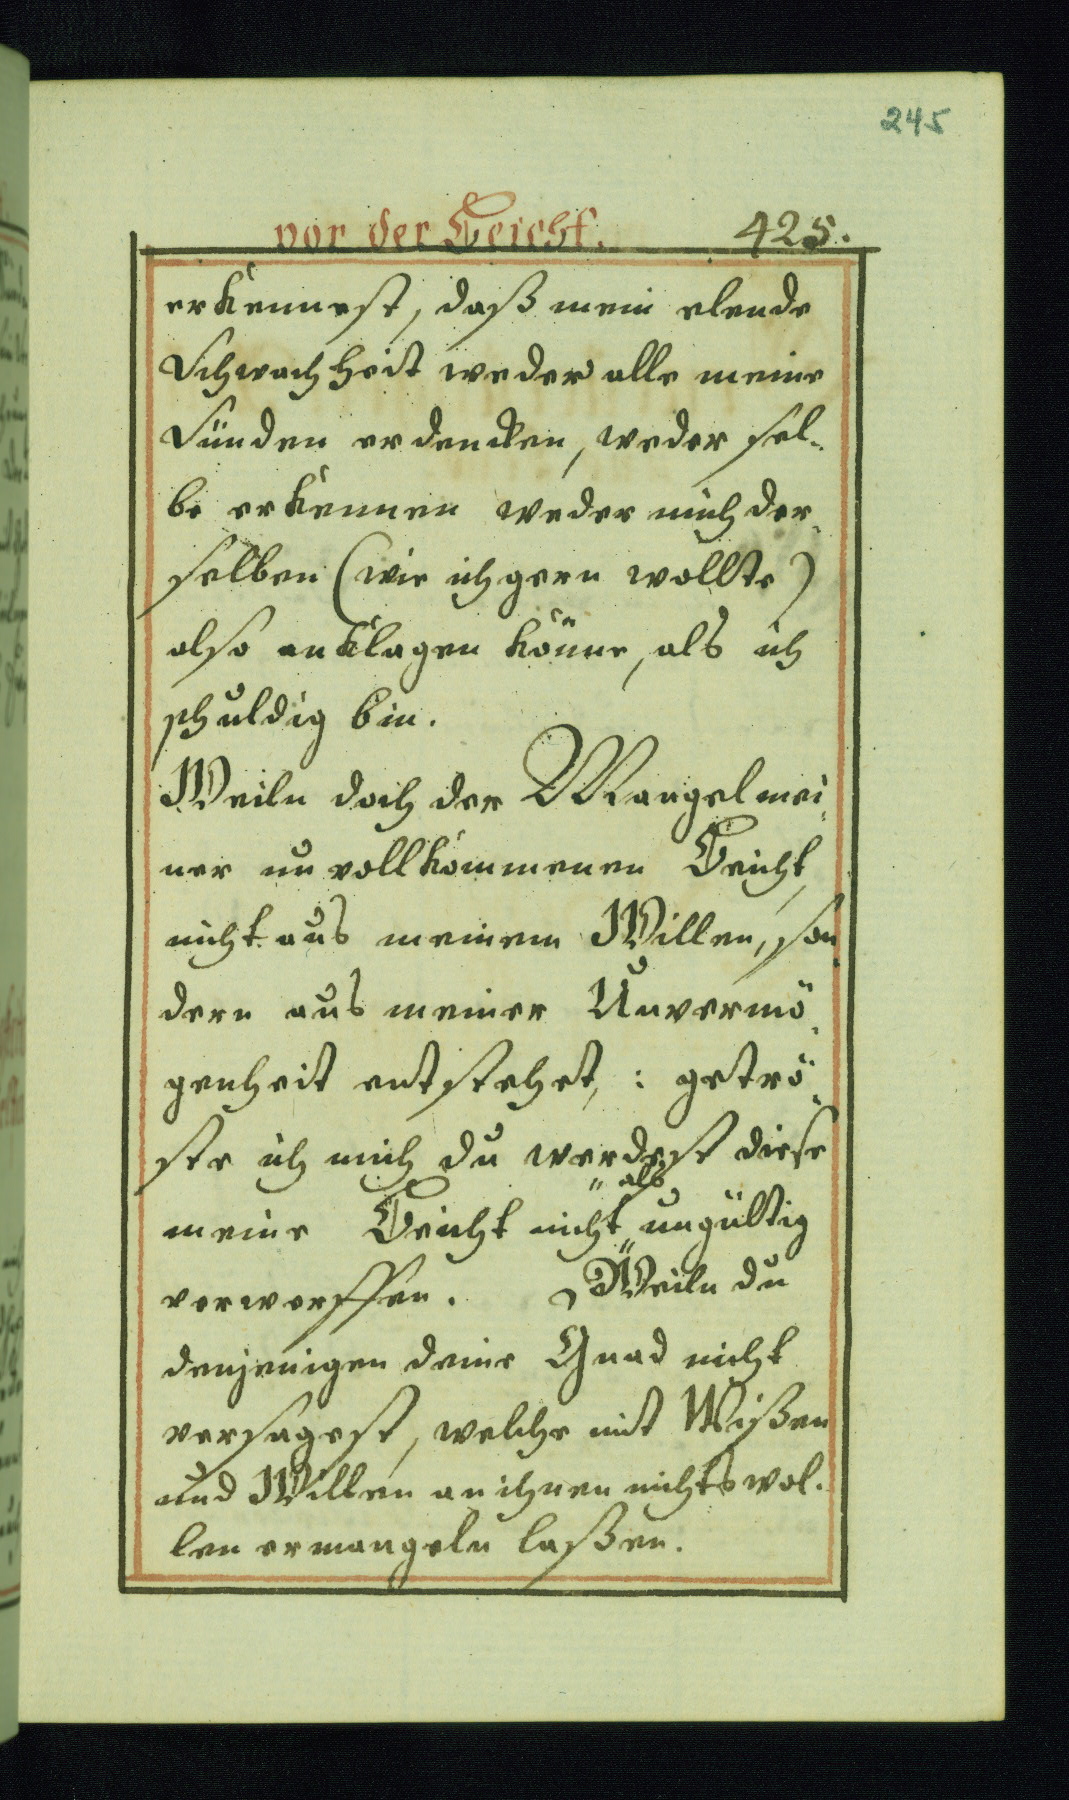 245
vor der Beicht. 425.
erkennest, daß mein elende
Schwachheit weder alle meine
Sünden erdencken, weder sel-
be erkennen weder mich der-
selben (wie ich gern wollte)
also anklagen könne, als ich
schuldig bin.
Weiln doch der Mangel mei-
ner unvollkommenen Beicht,
nicht aus meinem Willen, son-
dern aus meiner Unvermö-
genheit entstehet, : getrö-
ste ich mich du werdest diese
" als
meine Beicht nicht " ungültig
verwerffen. Weiln du
denjenigen deine Gnad nicht
versagest, welche mit Wißen
und Willen an ihnen nichts wol-
len ermangeln laßen.